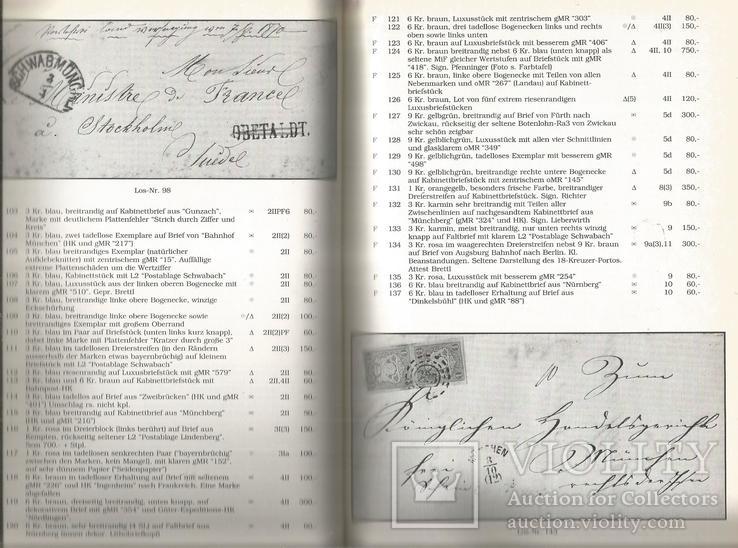 SCHWABMÜNCH
3
3
Monsieur
Ministre de France
à Stockholm
Suède
OBETALDT.
Los-Nr. 98
103 3 Kr. blau, breitrandig auf Kabinettbrief aus "Gunzach", ✉ 2IIPF6 80,-
Marke mit deutlichem Plattenfehler "Strich durch Ziffer und
Kreis"
104 3 Kr. blau, zwei tadellose Exemplare auf Brief von "Bahnhof ✉ 2II(2) 80,-
München" (HK und gMR "217")
105 3 Kr. blau, breitrandiges Exemplar (natürlicher 2II 80,-
Aufklebeknitter) mit zentrischem gMR "15". Auffällige
extreme Plattenschäden um die Wertziffer
106 3 Kr. blau, Kabinettstück mit L2 "Postablage Schwabach" 2II 80,-
107 3 Kr. blau, Luxusstück aus der linken oberen Bogenecke mit 2II 80,-
klarem gMR "510". Gepr. Brettl
108 3 Kr. blau, breitrandige linke obere Bogenecke, winzige 2II 80,-
Eckschürfung
109 3 Kr. blau, breitrandige linke obere Bogenecke sowie ⊙/Δ 2II(2) 100,-
breitrandiges Exemplar mit großem Oberrand
110 3 Kr. blau im Paar auf Briefstück (unten links kurz knapp), Δ 2II(2)PF 60,-
dabei linke Marke mit Plattenfehler "Kratzer durch große 3"
111 3 Kr. blau im tadellosen Dreierstreifen (in den Rändern Δ 2II(3) 150,-
ausserhalb der Marken etwas bayernbrüchig) auf kleinem
Briefstück mit L2 "Postablage Schwabach"
112 3 Kr. blau riesenrandig auf Luxusbriefstück mit gMR "579" Δ 2II 80,-
113 3 Kr. blau und 6 Kr. braun auf Kabinettbriefstück mit Δ 2II,4II 60,-
Bahnpost-HK
114 3 Kr. blau tadellos auf Brief aus "Zweibrücken" (HK und gMR ✉ 2II 80,-
"401") Umschlag rs. nicht kpl.
115 3 Kr. blau breitrandig auf Kabinettbrief aus "Münchberg" ✉ 2II 80,-
(HK und gMR "216")
116 1 Kr. rosa im Dreierblock (links berührt) auf Brief aus ✉ 3I(3) 150,-
Kempten, rückseitig seltener L2 "Postablage Lindenberg".
Sem 700.- + Stpl.
117 1 Kr. rosa im tadellosen senkrechten Paar ("bayernbrüchig" 3Ia 100,-
zwischen den Marken, kein Mangel), mit klarem gMR "152",
auf sehr dünnem Papier ("Seidenpapier")
118 6 Kr. braun in tadelloser Erhaltung auf Brief mit seltenem ✉ 4II 100,-
gMR "226" und HK "Ingenheim" nach Frankreich. Eine Marke
abgefallen
119 6 Kr. braun, dreiseitig breitrandig, unten knapp, auf ✉ 4II 300,-
dekorativem Brief mit gMR "354" und Güter-Expeditions-HK
"Nördlingen"
120 6 Kr. braun, sehr breitrandig (4 SL) auf Faltbrief aus ✉ 4II 80,-
Nürnberg
F 121 6 Kr. braun, Luxusstück mit zentrischem gMR "303" ⊙ 4II 80,-
122 6 Kr. braun, drei tadellose Bogenecken links und rechts ⊙/Δ 4II(3) 150,-
oben sowie links unten
F 123 6 Kr. braun auf Luxusbriefstück mit besserem gMR "406" Δ 4II 80,-
F 124 6 Kr. braun breitrandig nebst 6 Kr. blau (unten knapp) als Δ 4II, 10 750,-
seltene MiF gleicher Wertstufen auf Briefstück mit gMR
"418". Sign. Pfenninger (Foto s. Farbtafel)
F 125 6 Kr. braun, linke obere Bogenecke mit Teilen von allen Δ 4II 80,-
Nebenmarken und oMR "267" (Landau) auf Kabinett-
briefstück
126 6 Kr. braun, Lot von fünf extrem riesenrandigen Δ(5) 4II 120,-
Luxusbriefstücken
F 127 9 Kr. gelbgrün, breitrandig auf Brief von Fürth nach ✉ 5d 300,-
Zwickau, rückseitig der seltene Botenlohn-Ra3 von Zwickau
sehr schön zeigbar
F 128 9 Kr. gelblichgrün, Luxusstück mit allen vier Schnittlinien ⊙ 5d 80,-
und glasklarem oMR "349"
F 129 9 Kr. gelblichgrün, tadelloses Exemplar mit besserem gMR ⊙ 5d 80,-
"498"
F 130 9 Kr. gelblichgrün, breitrandige rechte untere Bogenecke Δ 5d 80,-
auf Kabinettbriefstück mit zentrischem oMR "145"
F 131 1 Kr. orangegelb, besonders frische Farbe, breitrandiger Δ 8(3) 350,-
Dreierstreifen auf Kabinettbriefstück. Sign. Richter
F 132 3 Kr. karmin sehr breitrandig mit Teilen aller ✉ 9b 80,-
Zwischenlinien auf nachgesandtem Kabinettbrief aus
"Münchberg" (gMR "324" und HK). Sign. Lieberwirth
F 133 3 Kr. karmin, meist breitrandig, nur unten rechts winzig ✉ 9 150,-
knapp auf Faltbrief mit klarem L2 "Postablage Schwabach"
F 134 3 Kr. rosa im waagerechten Dreierstreifen nebst 9 Kr. braun ✉ 9a(3),11 300,-
auf Brief von Augsburg Bahnhof nach Berlin. Kl.
Beanstandungen. Seltene Darstellung des 18-Kreuzer-Portos.
Attest Brettl
F 135 3 Kr. rosa, Luxusstück mit besserem gMR "254" ⊙ 9 80,-
F 136 6 Kr. blau breitrandig auf Kabinettbrief aus "Nürnberg" ✉ 10 60,-
F 137 6 Kr. blau in tadelloser Erhaltung auf Brief aus ✉ 10 60,-
"Dinkelsbühl" (HK und gMR "88")
Zum
Königlichen Handelsgericht
München
rechts der Isar
frei
VIOLITY
Auction for Collectors
auction.violity.com